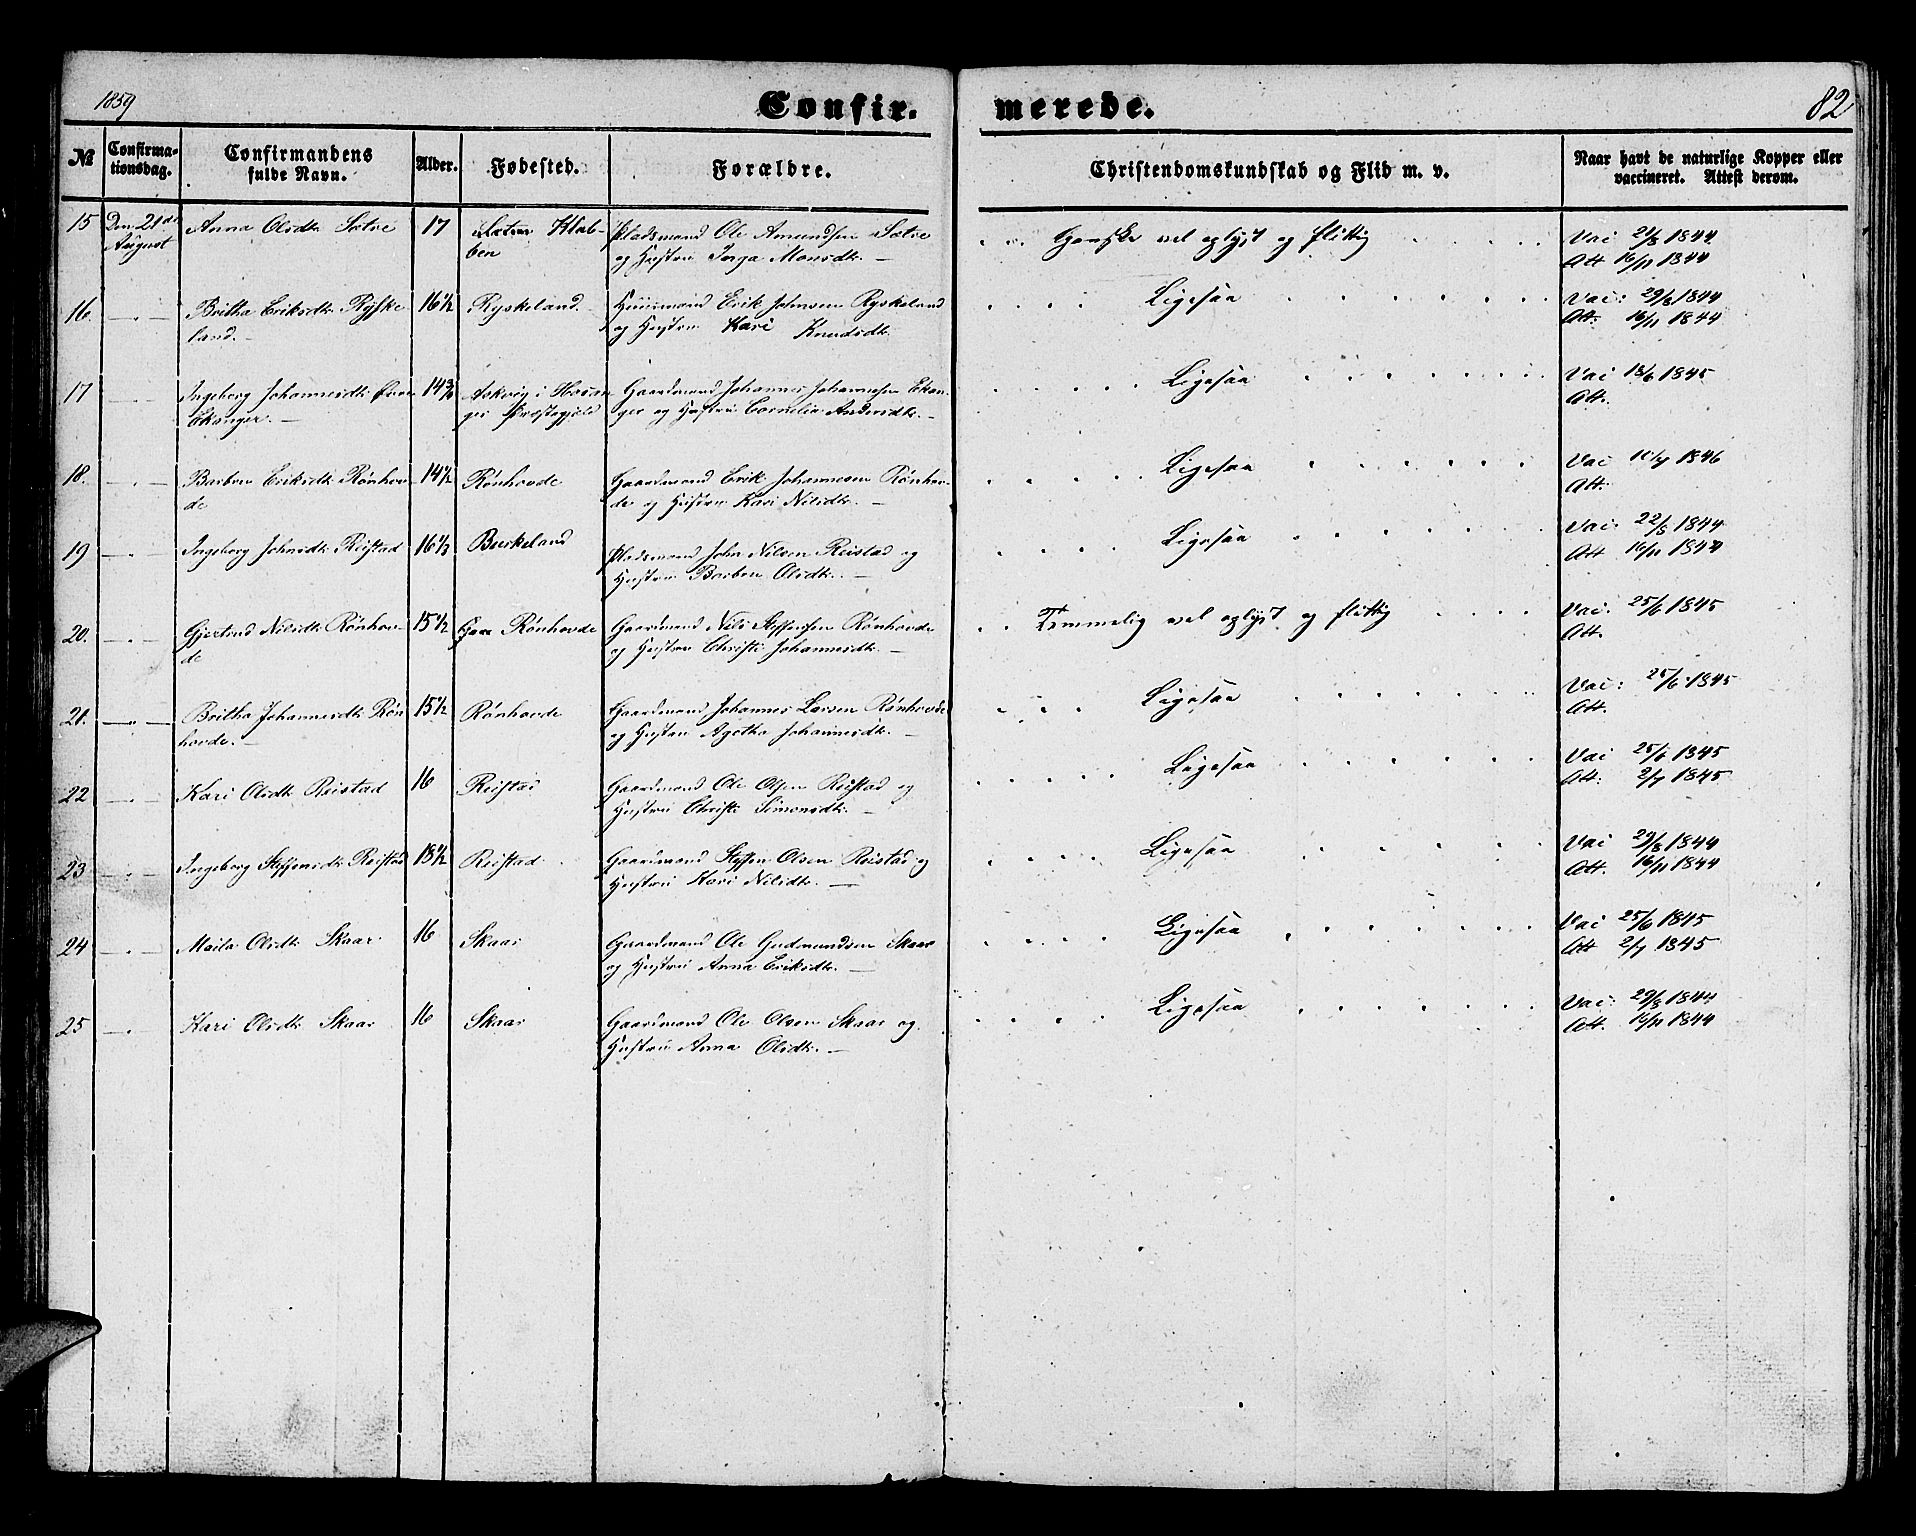 1859
Confir. merede.
82
№ Confirma-tionsdag. Confirmandens fulde Navn. Alder. Fødested. Forældre. Christendomskundskab og Flid m. v. Naar havt de naturlige Kopper eller vaccineret. Attest derom.
15 Den 21de Anna Olsdtr Sætre 17 Pladsmand Ole Amundsen Sætre Ganske vel oplyst og flittig Vac 29/8 1844
August og Hustru Inga Monsdtr. — Att 16/11 1844
16. —„— Britha Eriksdtr Ryske 16 1/2 Ryskeland. Huusmand Erik Johnsen Ryskeland Ligesaa Vac: 29/8 1844
land. — og Hustru Kari Knudsdtr Att: 16/11 1844
17 —„— Ingeborg Johannesdtr Øvre 14 3/4 Askvig i Hosan Gaardmand Johannes Johannesen Ekan- Ligesaa Vac 18/6 1845
Ekanger. — ger Præstegjeld ger og Hustru Cornelia Andersdtr. — Att.
18. —„— Barbro Eriksdtr Rønhov 14 1/2 Rønhovde Gaardmand Erik Johannesen Rønhov- Ligesaa Vac 10/7 1846
de de og Hustru Kari Nilsdtr. — Att.
19 —„— Ingeborg Johnsdtr Reistad 16 1/2 Birkeland Pladsmand John Nilsen Reistad og Ligesaa Vac: 22/8 1844
Hustru Barbro Olsdtr. — Att 16/11 1844
20. —„— Gjertrud Nilsdtr Rønhov 15 1/2 Rønhovde Gaardmand Nils Steffensen Rønhovde Temmelig vel oplyst og flittig Vac: 25/6 1845
de og Hustru Christi Johannesdtr. — Att.
21. —„— Britha Johannesdtr Røn 15 1/2 Rønhovde Gaardmand Johannes Larsen Rønhovde Ligesaa Vac: 25/6 1845
hovde. — og Hustru Agatha Johannesdtr. — Att.
22 —„— Kari Olsdtr Reistad 16 Reistad Gaardmand Ole Olsen Reistad og Ligesaa Vac 25/6 1845
Hustru Christi Simonsdtr. — Att. 2/7 1845
23 —„— Ingeborg Steffensdtr Reistad 18 1/2 Reistad Gaardmand Steffen Olsen Reistad og Ligesaa Vac 29/8 1844
Hustru Kari Nilsdtr. — Att. 16/11 1844
24 —„— Maila Olsdtr Skaar 16 Skaar Gaardmand Ole Gudmundsen Skaar Ligesaa Vac 25/6 1845
og Hustru Anna Eriksdtr. — Att 2/7 1845
25 —„— Kari Olsdtr Skaar 16 Skaar Gaardmand Ole Olsen Skaar og Ligesaa Vac: 29/8 1844
Hustru Anna Olsdtr. — Att. 16/11 1844